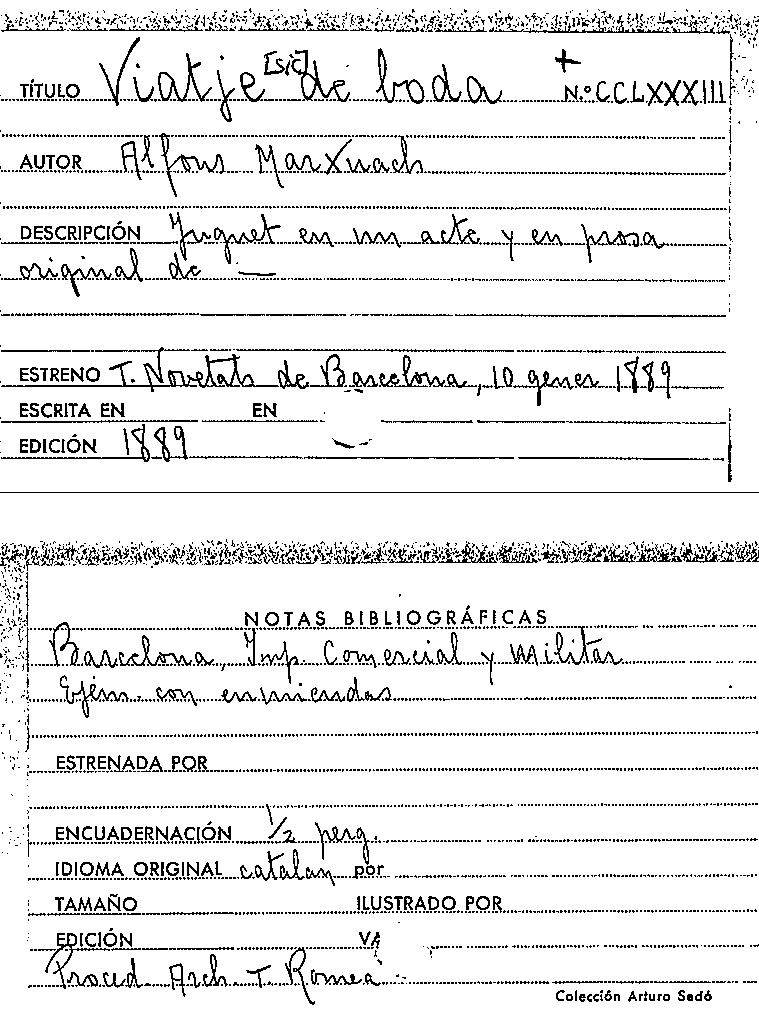 TÍTULO Viatje [sic] de boda + N.º CCLXXXIII
AUTOR Alfons Marxuach
DESCRIPCIÓN Juguet en un acte y en prosa
original de —
ESTRENO T. Novetats de Barcelona, 10 gener 1889
ESCRITA EN EN
EDICIÓN 1889
NOTAS BIBLIOGRÁFICAS
Barcelona, Imp. Comercial y Militar
Ejem. con enmiendas
ESTRENADA POR
ENCUADERNACIÓN 1/2 perg.
IDIOMA ORIGINAL catalan por
TAMAÑO ILUSTRADO POR
EDICIÓN
Proced. Arch. T. Romea
Colección Arturo Sedó